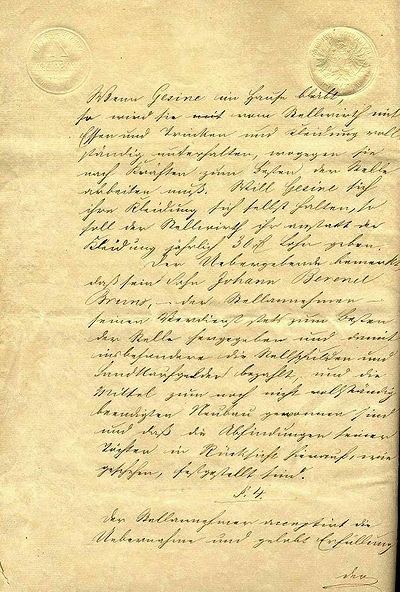 Wenn Gesine im Hause bleibt,
so wird sie mit vom Stellwirth mit
Essen und Trinken und Kleidung voll
ständig unterhalten, wogegen sie
nach Kräften zum Besten der Stelle
arbeiten muß. Will Gesine sich
ihre Kleidung sich selbst halten, so
soll der Stellwirth ihr anstatt der
Kleidung jährlich 30 Lohn geben.
Der Uebergebende bemerkt
daß sein Sohn Johann Berend
Bruns, der Stellannehmer
seinen Verdienst stets zum Besten
der Stelle hergegeben und damit
insbesondere die Stellschulden und
Landkaufgelder bezahlt und die
Mittel zum noch nicht vollständig
beendigten Neubau gewonnen sind
und daß die Abfindungen seiner
Töchter in Rücksicht hierauf, wie
geschehen, festgestellt sind.
§. 4.
Der Stellannehmer acceptirt die
Uebernahme und gelobt Erfüllung
der